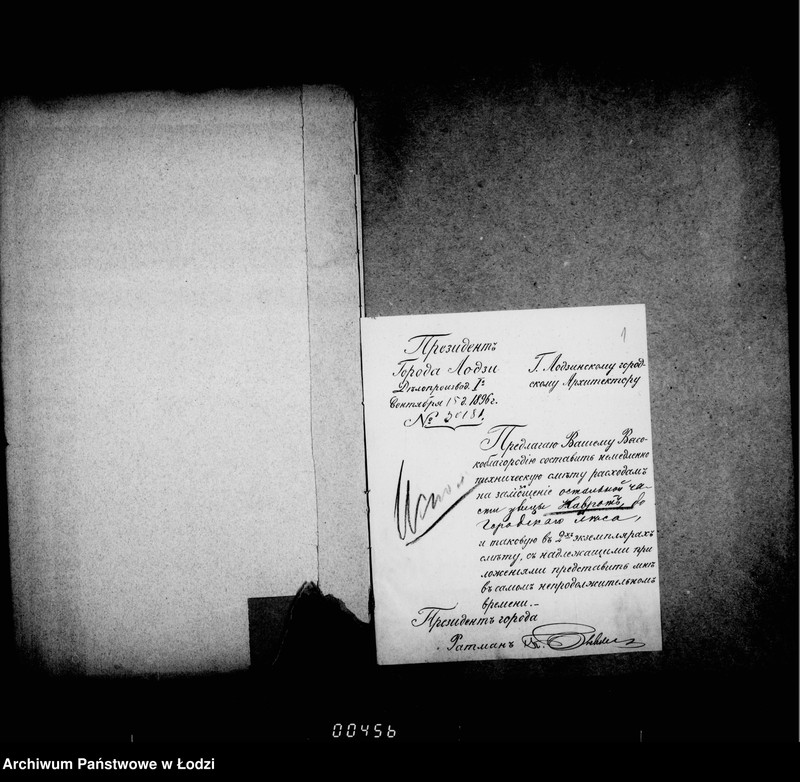 1
Президентъ
Города Лодзи
Дѣлопроизвод. I.
Сентября 15 д. 1896 г.
№
Г. Лодзинскому город-
скому Архитектору
Предлагаю Вашему Высо-
коблагородію составить немедленно
техническую смѣту расходамъ
на замощеніе остальной ча-
сти улицы Навротъ, до
Городского Лѣса,
и таковую въ 2хъ экземплярахъ
смѣту, съ надлежащими при
ложеніями представить мнѣ
въ самомъ непродолжительномъ
времени.-
Президентъ города
Ратманъ
00456
Archiwum Państwowe w Łodzi